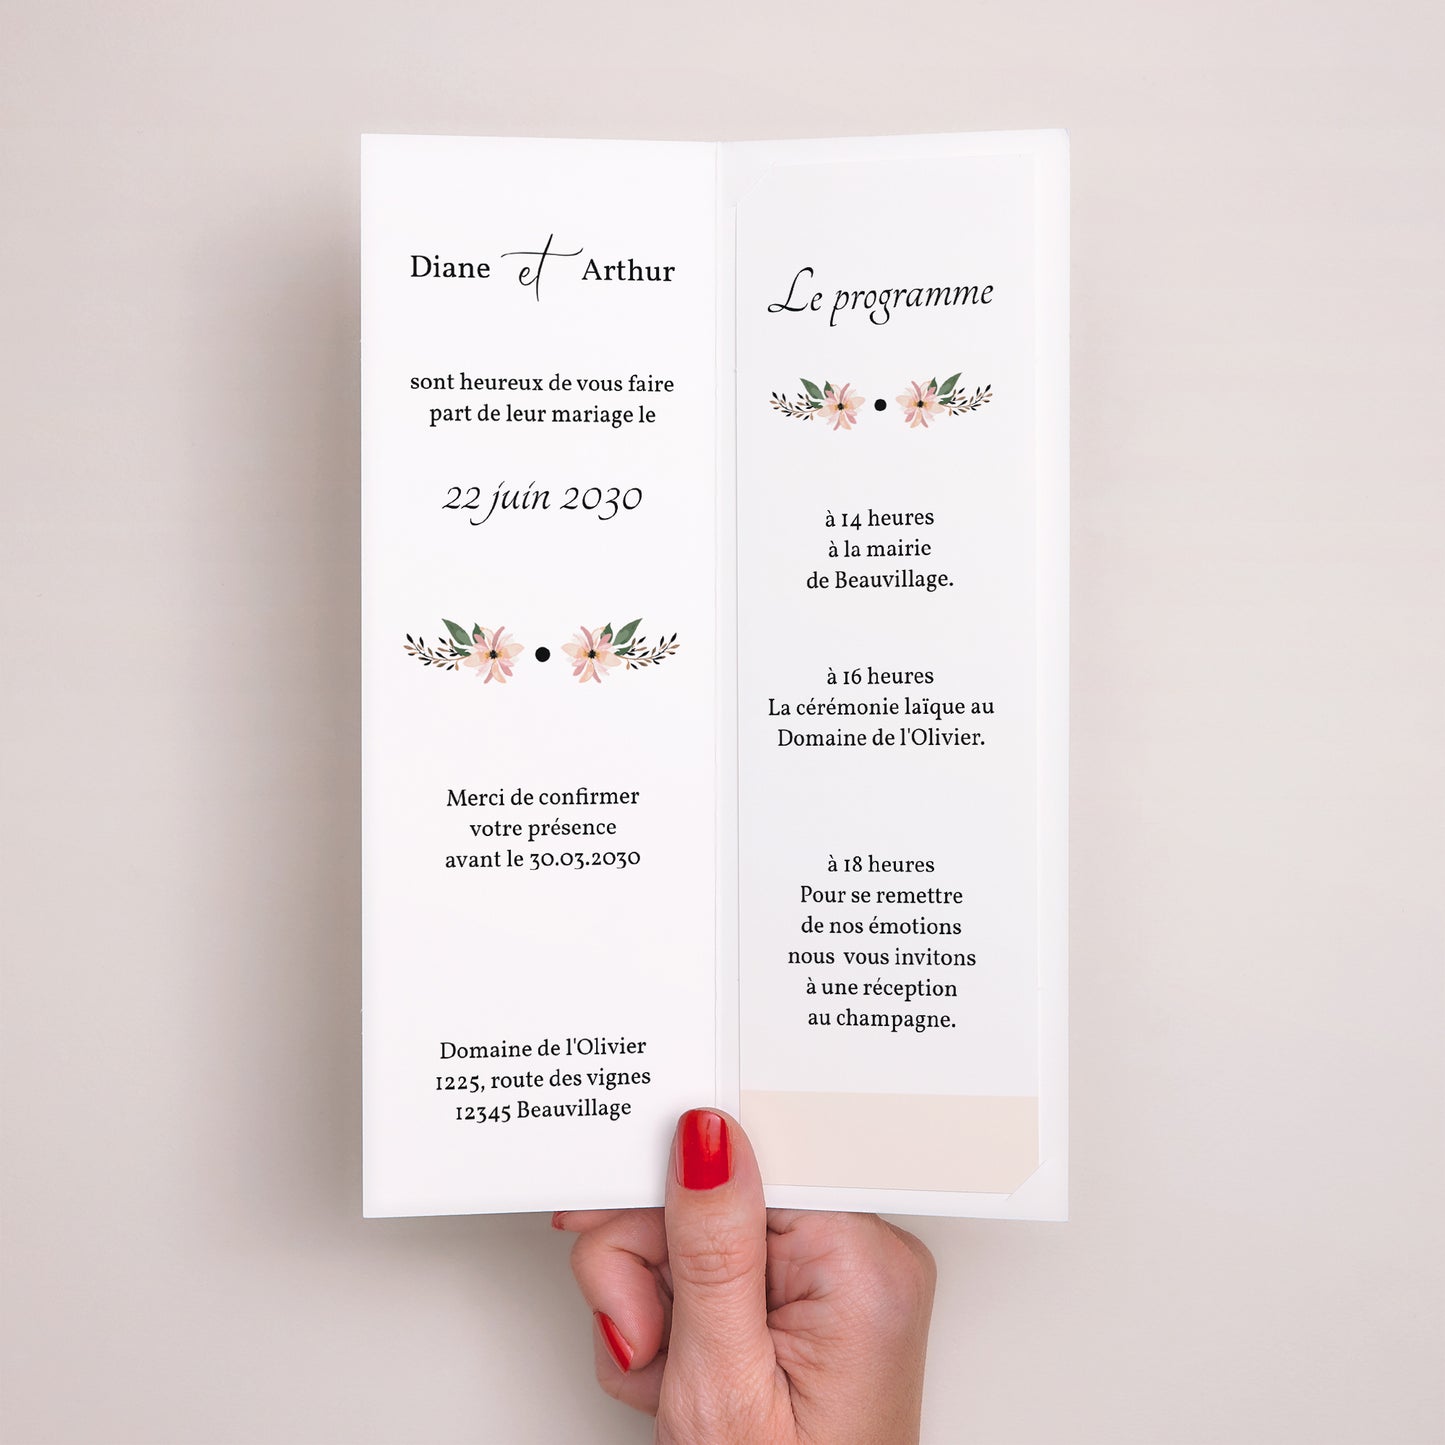 Diane et Arthur
sont heureux de vous faire
part de leur mariage le
22 juin 2030
Merci de confirmer
votre présence
avant le 30.03.2030
Domaine de l'Olivier
1225, route des vignes
12345 Beauvillage
Le programme
à 14 heures
à la mairie
de Beauvillage.
à 16 heures
La cérémonie laïque au
Domaine de l'Olivier.
à 18 heures
Pour se remettre
de nos émotions
nous vous invitons
à une réception
au champagne.